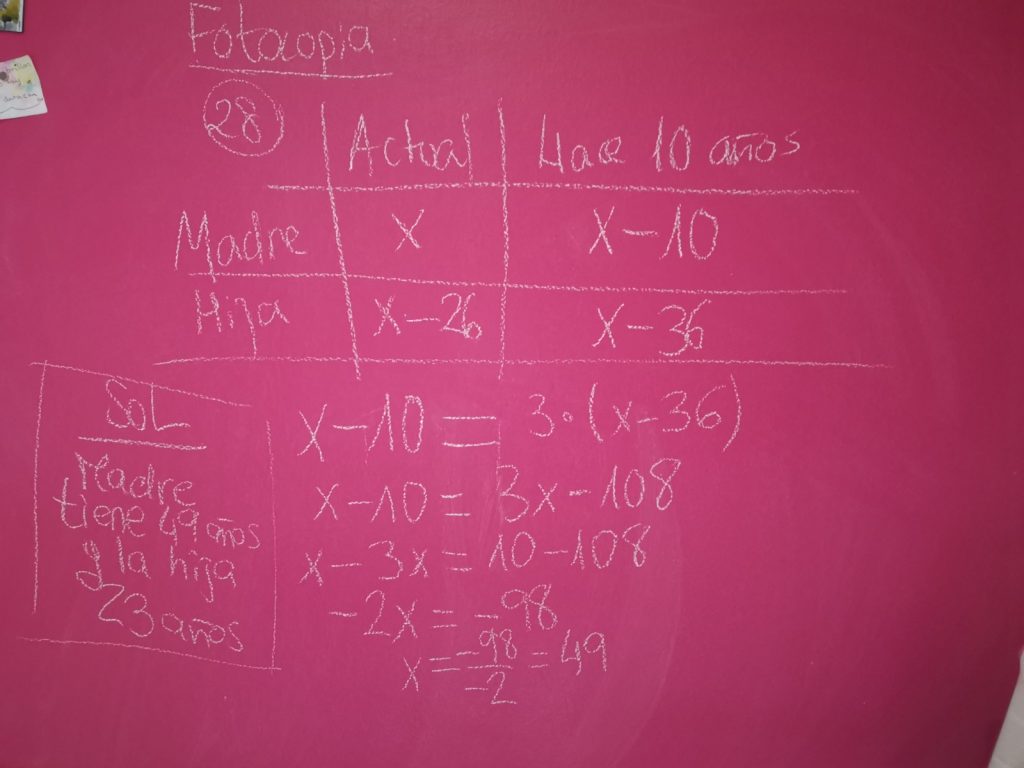 Fotocopia
28
Actual Hace 10 años
Madre x x-10
Hija x-26 x-36
x-10 = 3·(x-36)
x-10 = 3x-108
x-3x = 10-108
-2x = -98
x = -98/-2 = 49
SOL
Madre
tiene 49 años
y la hija
23 años